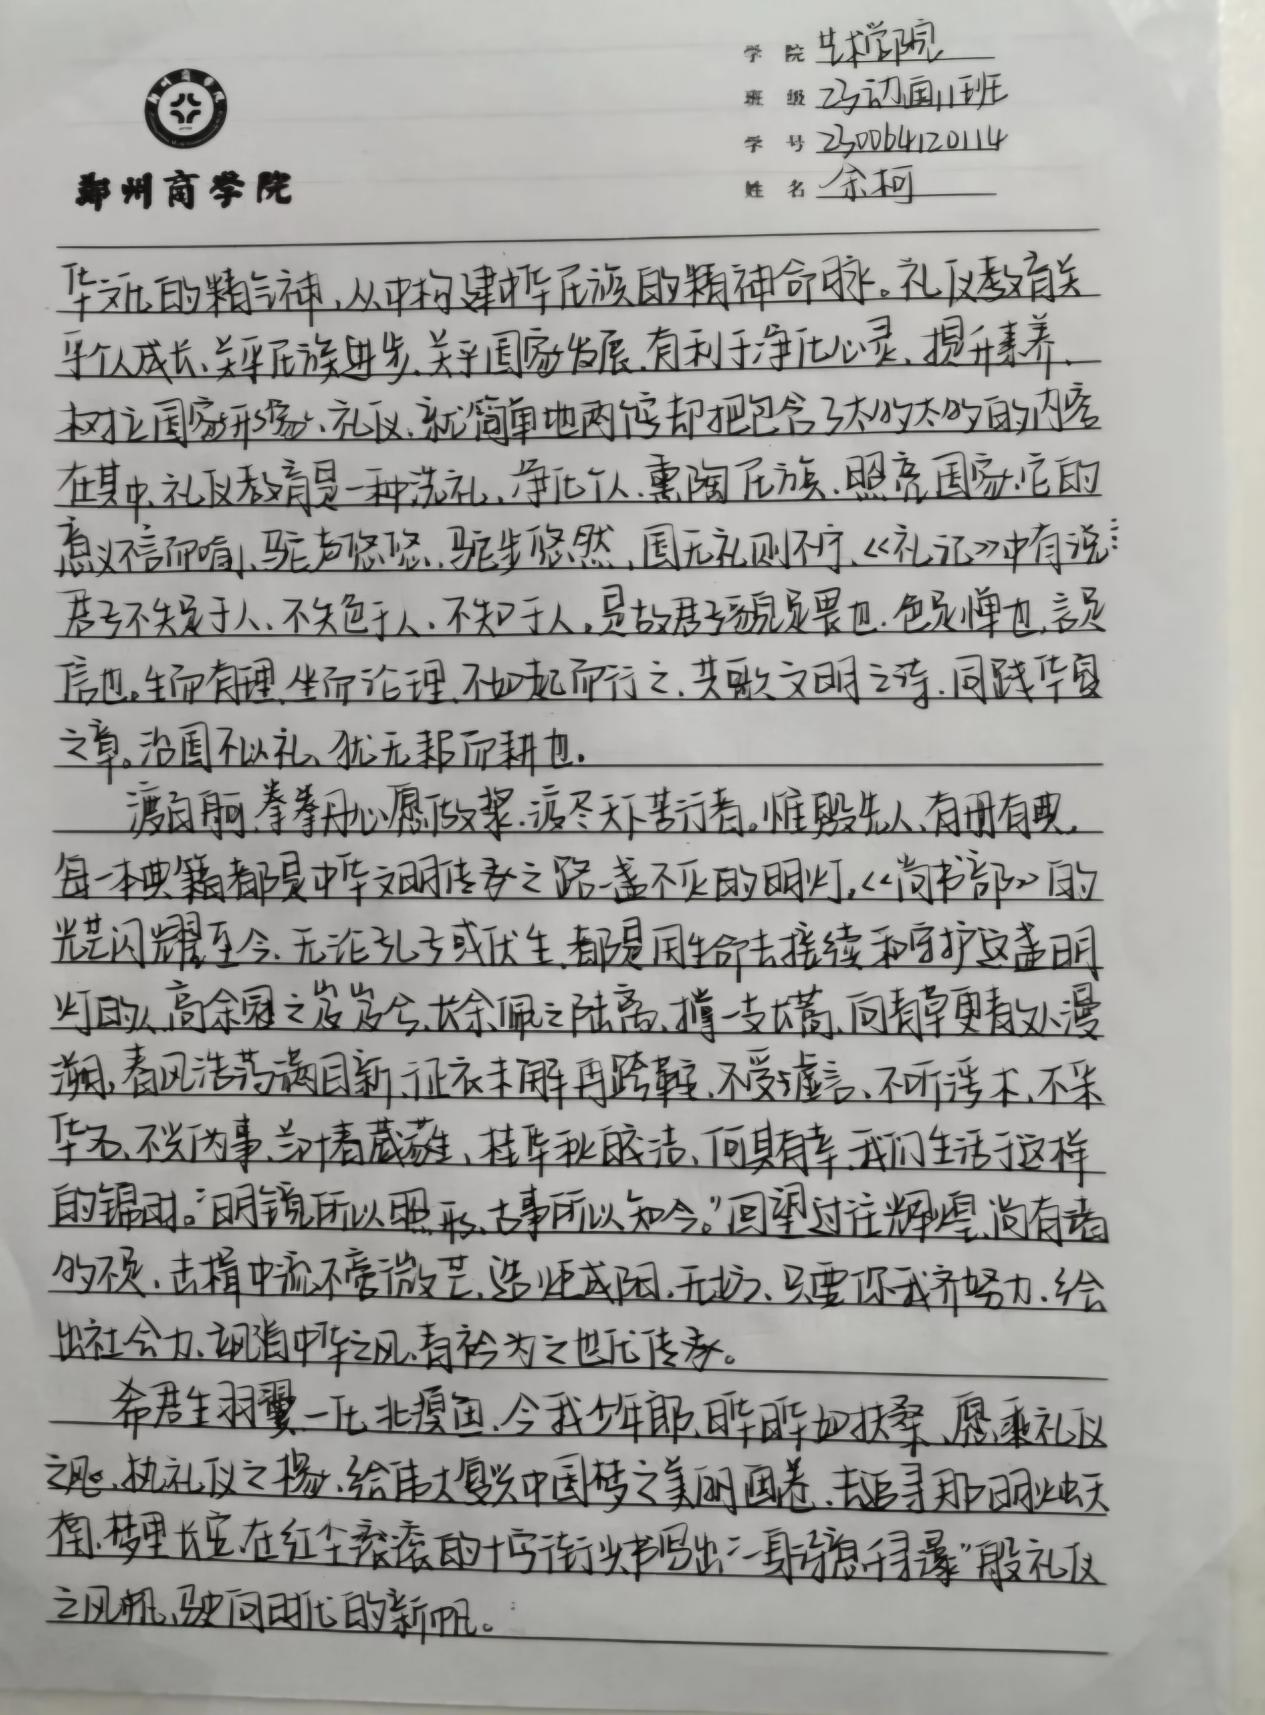 学院 艺术学院
班级 23动画11班
学号 230064120114
姓名 余柯
郑州商学院
华文化的精气神,从中构建中华民族的精神命脉。礼仪教育关
乎个人成长、关乎民族进步、关乎国家发展,有利于净化心灵、提升素养、
树立国家形象、礼仪、就简单地两字却把包含了太多太多的内容
在其中,礼仪教育是一种洗礼、净化个人、熏陶民族、照亮国家,它的
意义不言而喻、驼声悠悠、驼步悠然、国无礼则不宁、《礼记》中有说:
君子不失足于人、不失色于人、不失口于人。是故君子貌足畏也.色足惮也,言足
信也。生而有理,坐而论理,不如起而行之、共歌文明之诗、同践华夏
之章。治国不以礼、犹无耜而耕也.
渡白舸,拳拳丹心愿做桨.渡尽天下苦行者。惟殷先人,有册有典,
每一本典籍都是中华文明传承之路一盏不灭的明灯,《尚书部》的
光芒闪耀至今、无论孔子或伏生,都是用生命去接续和守护这盏明
灯的人,高余冠之岌岌兮、长余佩之陆离、撑一支长篙、向青草更青处漫
溯,春风浩荡满目新,征衣未解再跨鞍、不受虚言、不听浮术、不采
华名、不兴伪事、兰叶春葳蕤、桂华秋皎洁、何其有幸,我们生活于这样
的锦时。"明镜所以照形、古事所以知今。"回望过往辉煌,尚有诸
多不足、击楫中流不啻微芒、造炬成阳、无妨、只要你我齐努力、绘
出社会力、飒沓中华之风,青衿为之世代传承。
希君生羽翼,一化北溟鱼、今我少年郎,晔晔如扶桑、愿乘礼仪
之风、执礼仪之杨、绘伟大复兴中国梦之美丽画卷、去追寻那明烛天
南、梦里长安,在红尘滚滚的十字街头书写出"一身诗意千寻瀑"般礼仪
之风帆、驶向时代的新帆。